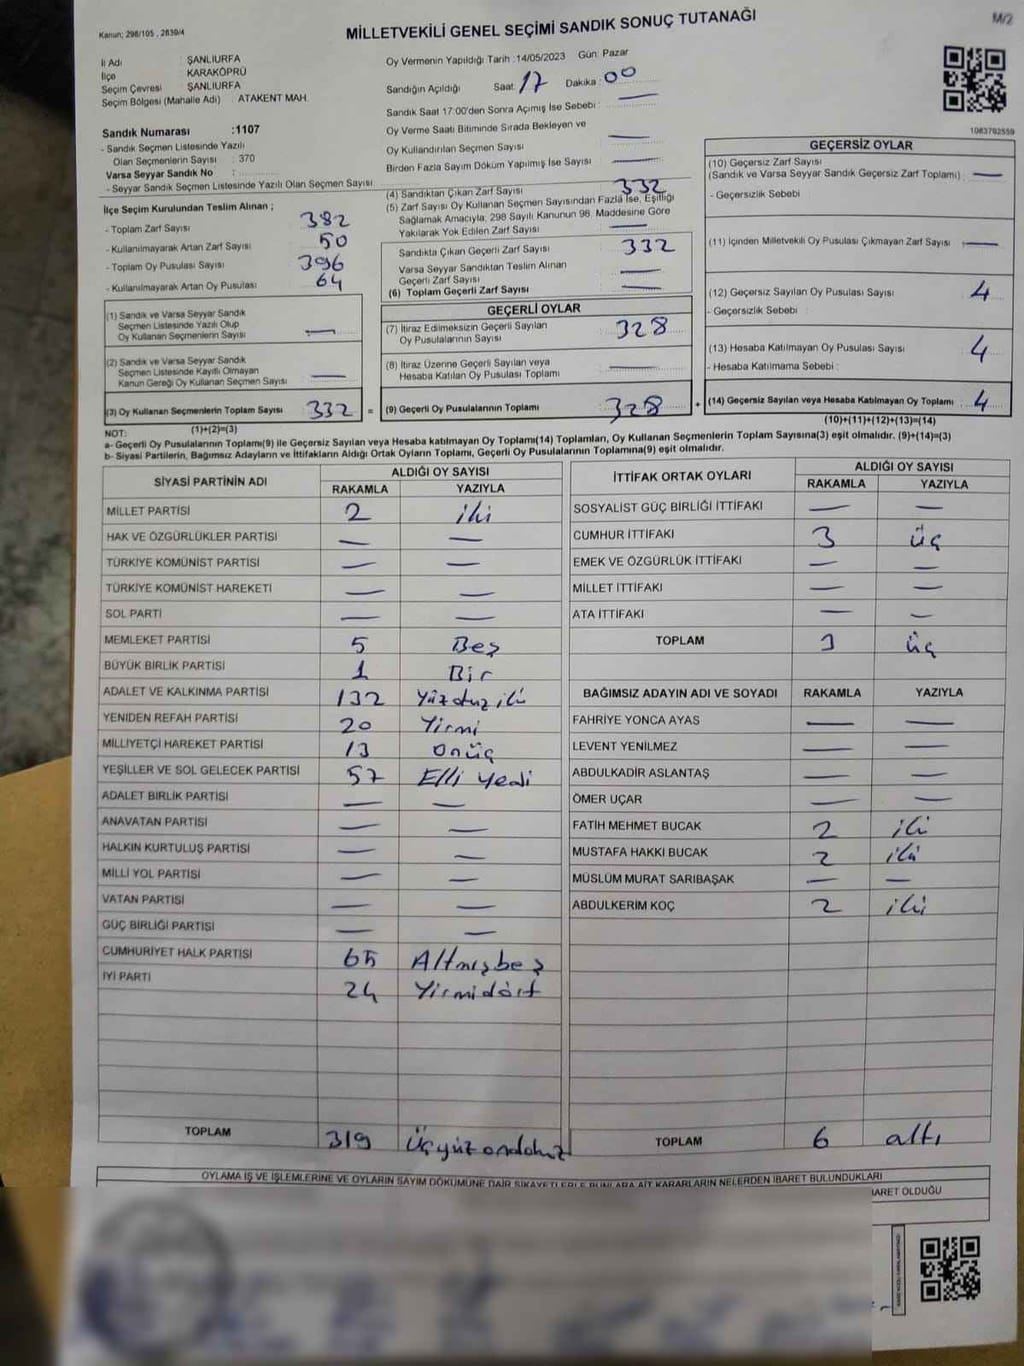 M/2
Kanun; 298/105 , 2839/4
MİLLETVEKİLİ GENEL SEÇİMİ SANDIK SONUÇ TUTANAĞI
İl Adı : ŞANLIURFA
İlçe : KARAKÖPRÜ
Seçim Çevresi : ŞANLIURFA
Seçim Bölgesi (Mahalle Adı) : ATAKENT MAH.
Sandık Numarası :1107
- Sandık Seçmen Listesinde Yazılı
Olan Seçmenlerin Sayısı : 370
Varsa Seyyar Sandık No :
- Seyyar Sandık Seçmen Listesinde Yazılı Olan Seçmen Sayısı
Oy Vermenin Yapıldığı Tarih :14/05/2023 Gün: Pazar
Sandığın Açıldığı Saat: 17 Dakika: 00
Sandık Saat 17:00'den Sonra Açımış İse Sebebi : —
Oy Verme Saati Bitiminde Sırada Bekleyen ve
Oy Kullandırılan Seçmen Sayısı —
Birden Fazla Sayım Döküm Yapılmış İse Sayısı —
İlçe Seçim Kurulundan Teslim Alınan ;
- Toplam Zarf Sayısı 382
- Kullanılmayarak Artan Zarf Sayısı 50
- Toplam Oy Pusulası Sayısı 396
- Kullanılmayarak Artan Oy Pusulası 64
(1) Sandık ve Varsa Seyyar Sandık
Seçmen Listesinde Yazılı Olup
Oy Kullanan Seçmenlerin Sayısı —
(2) Sandık ve Varsa Seyyar Sandık
Seçmen Listesinde Kayıtlı Olmayan
Kanun Gereği Oy Kullanan Seçmen Sayısı —
(3) Oy Kullanan Seçmenlerin Toplam Sayısı 332 =
(1)+(2)=(3)
(4) Sandıktan Çıkan Zarf Sayısı 332
(5) Zarf Sayısı Oy Kullanan Seçmen Sayısından Fazla İse, Eşitliği
Sağlamak Amacıyla; 298 Sayılı Kanunun 98. Maddesine Göre
Yakılarak Yok Edilen Zarf Sayısı —
Sandıkta Çıkan Geçerli Zarf Sayısı 332
Varsa Seyyar Sandıktan Teslim Alınan
Geçerli Zarf Sayısı —
(6) Toplam Geçerli Zarf Sayısı —
GEÇERLİ OYLAR
(7) İtiraz Edilmeksizin Geçerli Sayılan
Oy Pusulalarının Sayısı 328
(8) İtiraz Üzerine Geçerli Sayılan veya
Hesaba Katılan Oy Pusulası Toplamı —
(9) Geçerli Oy Pusulalarının Toplamı 328 +
1083782559
GEÇERSİZ OYLAR
(10) Geçersiz Zarf Sayısı
(Sandık ve Varsa Seyyar Sandık Geçersiz Zarf Toplamı) : —
- Geçersizlik Sebebi
(11) İçinden Milletvekili Oy Pusulası Çıkmayan Zarf Sayısı —
(12) Geçersiz Sayılan Oy Pusulası Sayısı 4
- Geçersizlik Sebebi :
(13) Hesaba Katılmayan Oy Pusulası Sayısı 4
- Hesaba Katılmama Sebebi :
(14) Geçersiz Sayılan veya Hesaba Katılmayan Oy Toplamı : 4
(10)+(11)+(12)+(13)=(14)
NOT:
a- Geçerli Oy Pusulalarının Toplamı(9) ile Geçersiz Sayılan veya Hesaba katılmayan Oy Toplamı(14) Toplamları, Oy Kullanan Seçmenlerin Toplam Sayısına(3) eşit olmalıdır. (9)+(14)=(3)
b- Siyasi Partilerin, Bağımsız Adayların ve İttifakların Aldığı Ortak Oyların Toplamı, Geçerli Oy Pusulalarının Toplamına(9) eşit olmalıdır.
SİYASİ PARTİNİN ADI ALDIĞI OY SAYISI
RAKAMLA YAZIYLA
MİLLET PARTİSİ 2 iki
HAK VE ÖZGÜRLÜKLER PARTİSİ — —
TÜRKİYE KOMÜNİST PARTİSİ — —
TÜRKİYE KOMÜNİST HAREKETİ — —
SOL PARTİ — —
MEMLEKET PARTİSİ 5 Beş
BÜYÜK BİRLİK PARTİSİ 1 Bir
ADALET VE KALKINMA PARTİSİ 132 Yüzotuz iki
YENİDEN REFAH PARTİSİ 20 Yirmi
MİLLİYETÇİ HAREKET PARTİSİ 13 onüç
YEŞİLLER VE SOL GELECEK PARTİSİ 57 Elli yedi
ADALET BİRLİK PARTİSİ — —
ANAVATAN PARTİSİ — —
HALKIN KURTULUŞ PARTİSİ — —
MİLLİ YOL PARTİSİ — —
VATAN PARTİSİ — —
GÜÇ BİRLİĞİ PARTİSİ — —
CUMHURİYET HALK PARTİSİ 65 Altmışbeş
İYİ PARTİ 24 Yirmidört
TOPLAM 319 Üçyüzondokuz
İTTİFAK ORTAK OYLARI ALDIĞI OY SAYISI
RAKAMLA YAZIYLA
SOSYALİST GÜÇ BİRLİĞİ İTTİFAKI — —
CUMHUR İTTİFAKI 3 üç
EMEK VE ÖZGÜRLÜK İTTİFAKI — —
MİLLET İTTİFAKI — —
ATA İTTİFAKI — —
TOPLAM 3 üç
BAĞIMSIZ ADAYIN ADI VE SOYADI RAKAMLA YAZIYLA
FAHRİYE YONCA AYAS — —
LEVENT YENİLMEZ — —
ABDULKADİR ASLANTAŞ — —
ÖMER UÇAR — —
FATİH MEHMET BUCAK 2 iki
MUSTAFA HAKKI BUCAK 2 iki
MÜSLÜM MURAT SARIBAŞAK — —
ABDULKERİM KOÇ 2 iki
TOPLAM 6 altı
OYLAMA İŞ VE İŞLEMLERİNE VE OYLARIN SAYIM DÖKÜMÜNE DAİR ŞİKAYETLERLE BUNLARA AİT KARARLARIN NELERDEN İBARET BULUNDUKLARI
İBARET OLDUĞU